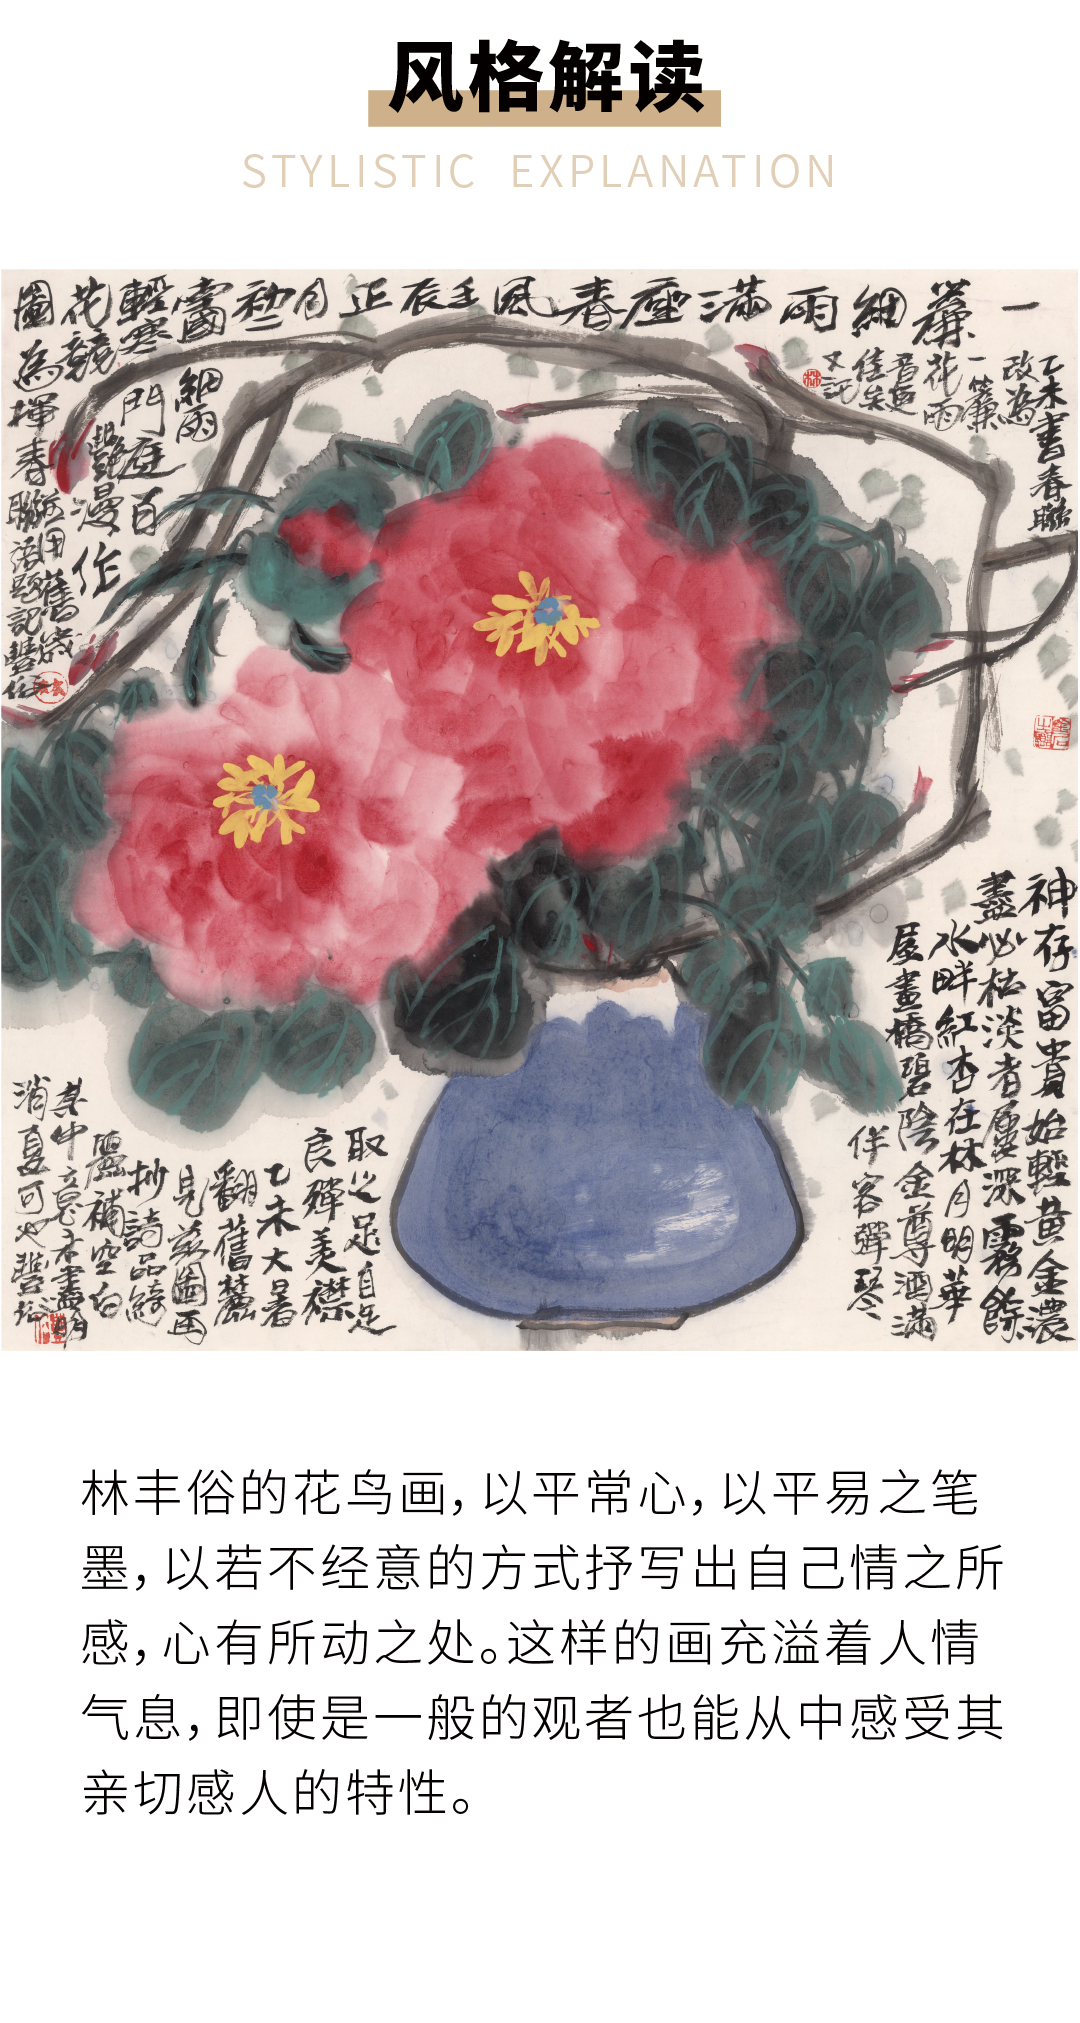 风格解读
STYLISTIC EXPLANATION
一簾細雨滿座春風壬辰正月初二
當國
輕寒
花競
圖為揮春聯語題記豐俗
細雨
門庭百
艷漫作
用舊歲
乙未書春聯
改為
一簾
花雨
音過
佳矣
又記
神存富貴始輕黃金濃
盡必枯淡者屢深霧餘
水畔紅杏在林月明華
屋畫橋碧陰金尊酒滿
伴客彈琴
取之足自足
良殫美襟
乙未大暑
翻舊麓
見茲圖再
抄詩品綺
麗補空白
其中立意亦盡明
消夏可也豐俗
林丰俗的花鸟画，以平常心，以平易之笔
墨，以若不经意的方式抒写出自己情之所
感，心有所动之处。这样的画充溢着人情
气息，即使是一般的观者也能从中感受其
亲切感人的特性。